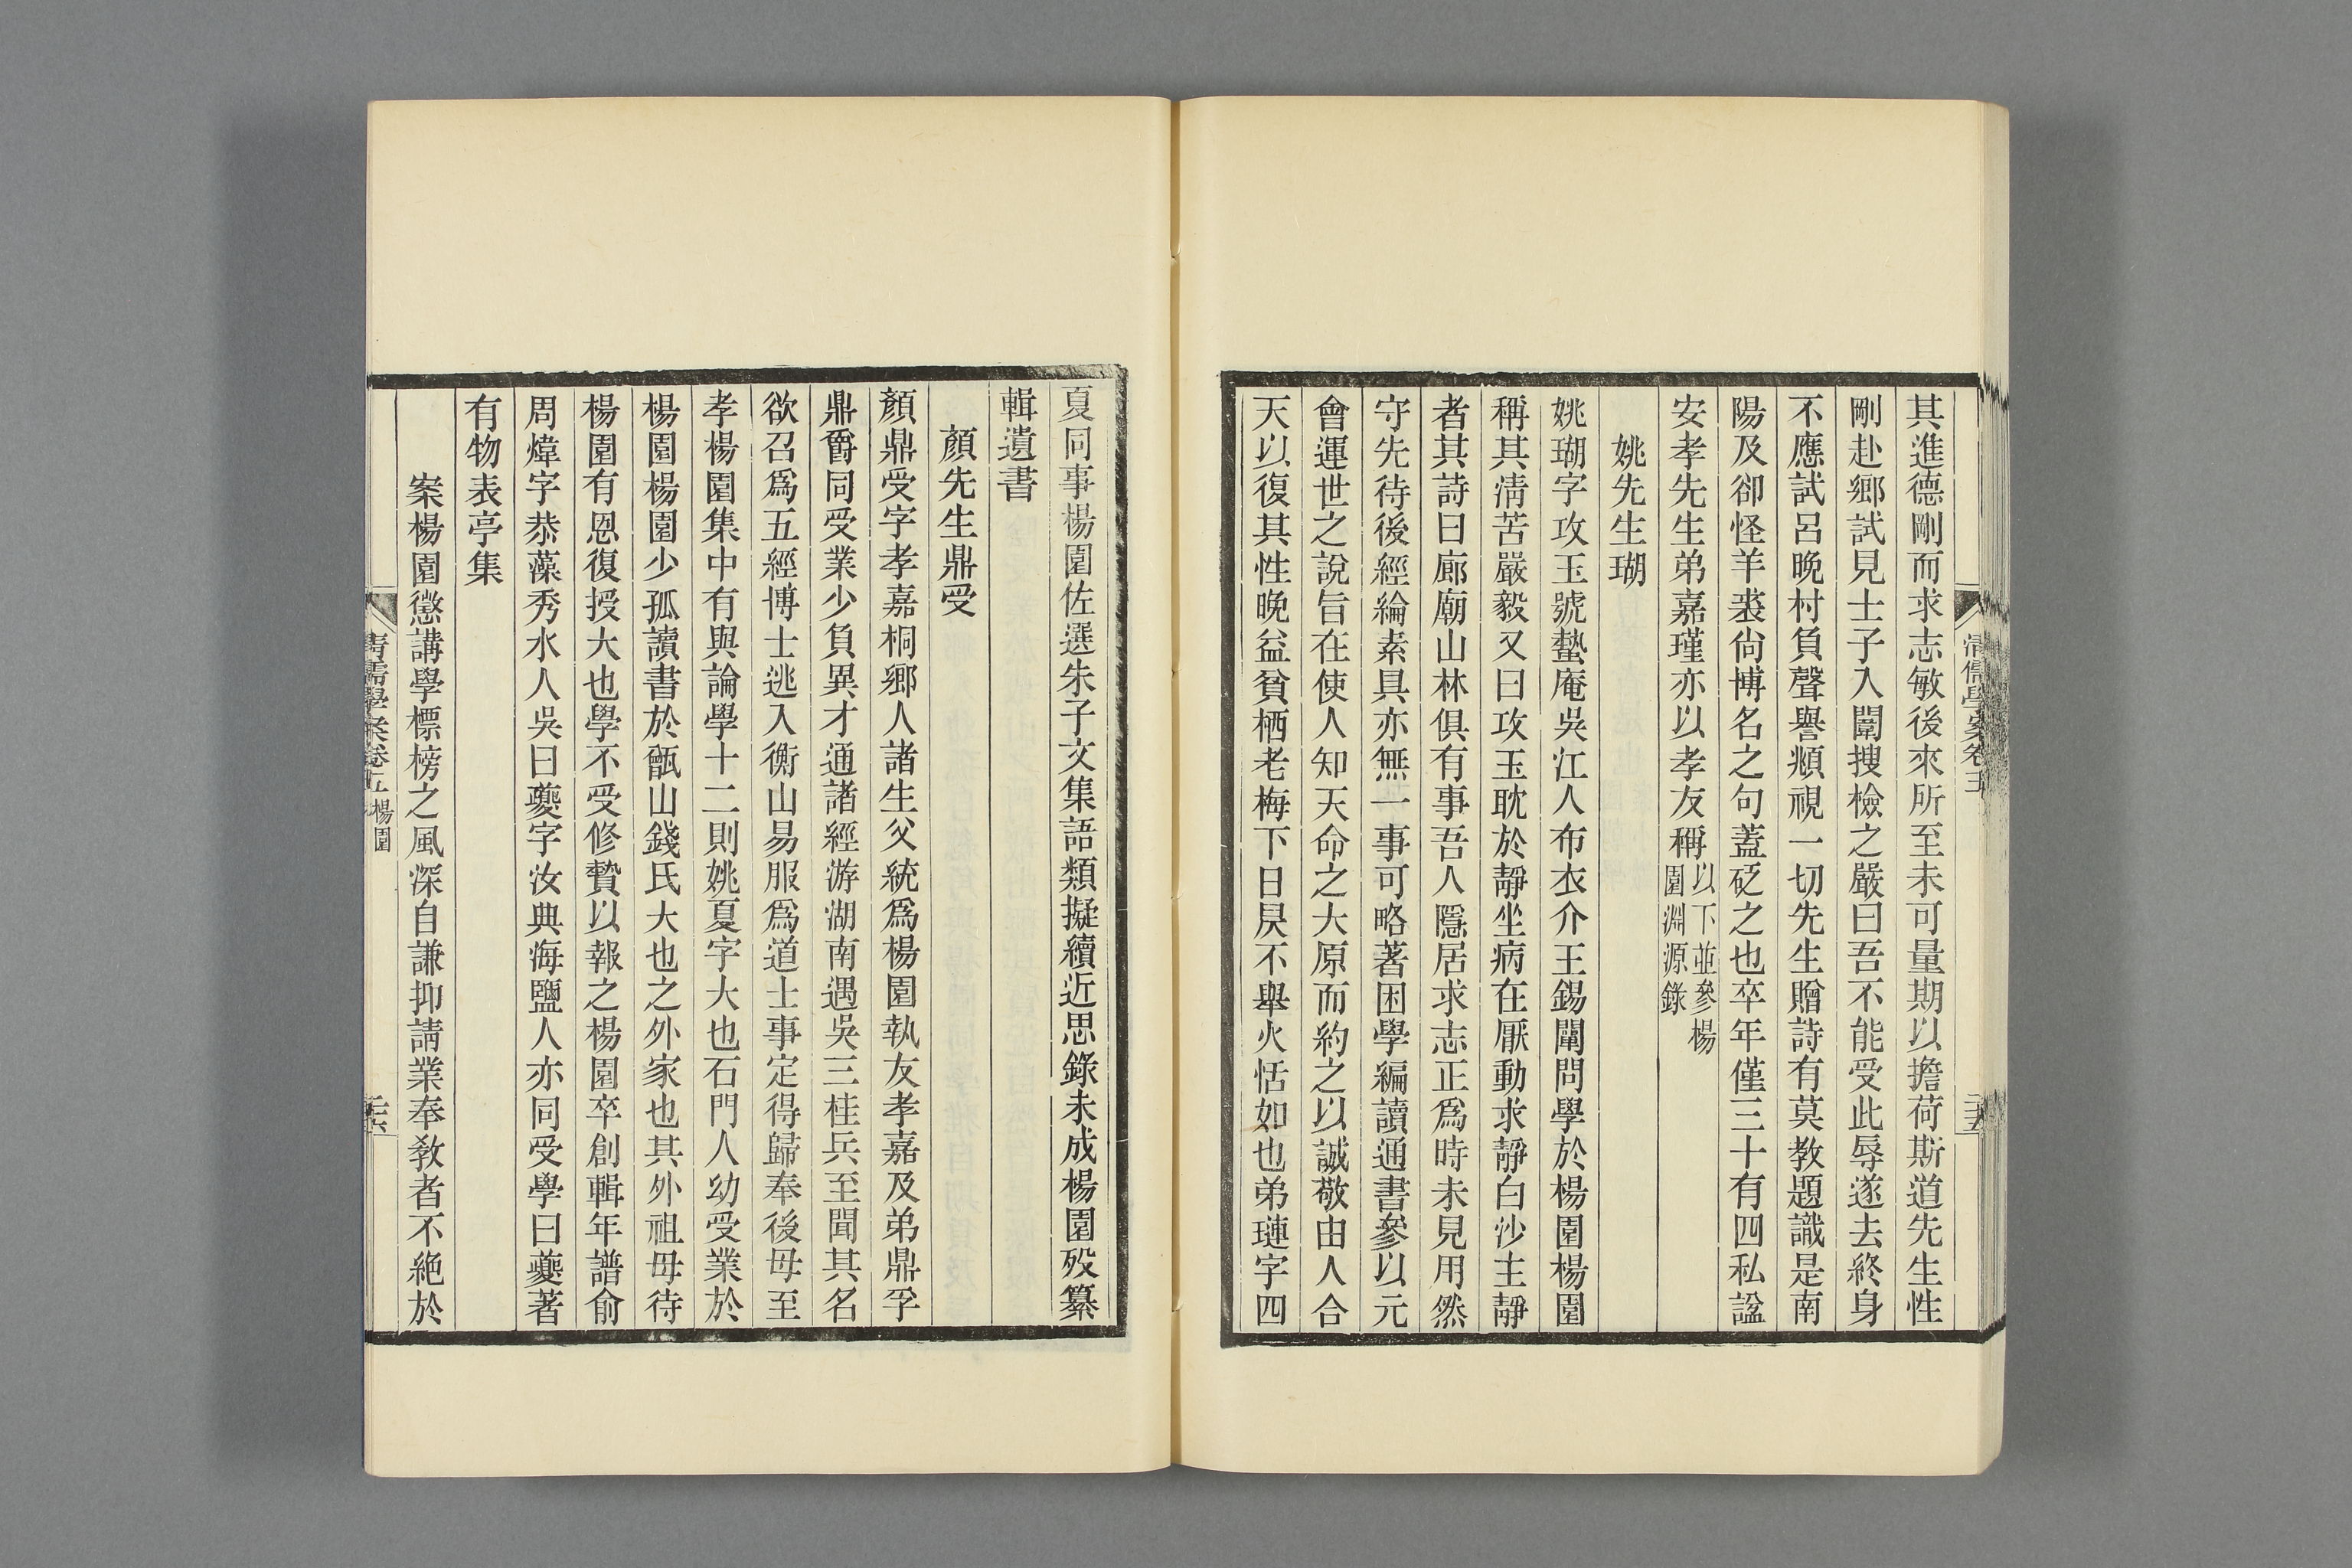 清儒學案卷五
其進德剛而求志敏後來所至未可量期以擔荷斯道先生性
剛赴鄉試見士子入闈搜檢之嚴曰吾不能受此辱遂去終身
不應試呂晚村負聲譽頫視一切先生贈詩有莫教題識是南
陽及卻怪羊裘尙博名之句蓋砭之也卒年僅三十有四私諡
安孝先生弟嘉瑾亦以孝友稱以下並參楊園淵源錄
姚先生瑚
姚瑚字攻玉號蟄庵吳江人布衣介王錫闡問學於楊園楊園
稱其淸苦嚴毅又曰攻玉耽於靜坐病在厭動求靜白沙主靜
者其詩曰廊廟山林俱有事吾人隱居求志正爲時未見用然
守先待後經綸素具亦無一事可略著困學編讀通書參以元
會運世之說旨在使人知天命之大原而約之以誠敬由人合
天以復其性晚益貧栖老梅下日昃不舉火恬如也弟璉字四
夏同事楊園佐選朱子文集語類擬續近思錄未成楊園歿纂
輯遺書
顏先生鼎受
顏鼎受字孝嘉桐鄉人諸生父統爲楊園執友孝嘉及弟鼎孚
鼎爵同受業少負異才通諸經游湖南遇吳三桂兵至聞其名
欲召爲五經博士逃入衡山易服爲道士事定得歸奉後母至
孝楊園集中有與論學十二則姚夏字大也石門人幼受業於
楊園楊園少孤讀書於甑山錢氏大也之外家也其外祖母待
楊園有恩復授大也學不受修贄以報之楊園卒創輯年譜俞
周煒字恭藻秀水人吳曰夔字汝典海鹽人亦同受學曰夔著
有物表亭集
案楊園懲講學標榜之風深自謙抑請業奉教者不絶於
清儒學案卷五 楊園